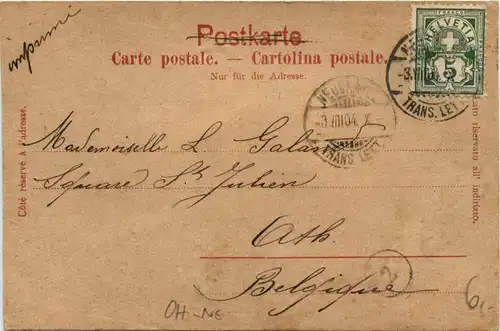 imprimé
Postkarte
Carte postale. — Cartolina postale.
Nur für die Adresse.
FRANCO
HELVETIA
5
-3.VIII.04. X-
TRANS. LETT.
-3.VIII.04. X-
TRANS. LETT.
Côté réservé à l'adresse.
Lato riservato all' indirizzo.
Mademoiselle L. Galan
Square St Julien
Ath.
Belgique
2
CH-NE
6,